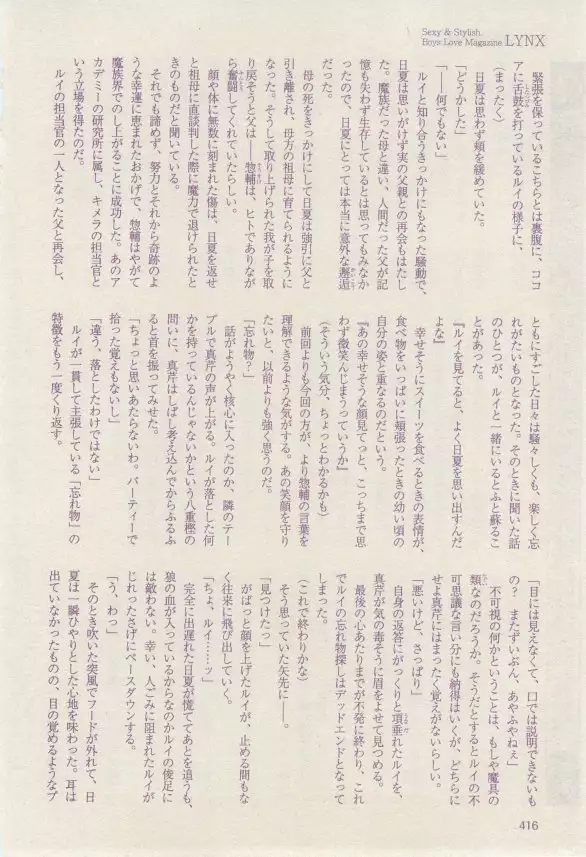 Sexy & Stylish
Boys Love Magazine LYNX
緊張を保っているこちらとは裏腹に、ココ
アに舌鼓を打っているルイの様子に、
(まったく)
日夏は思わず頬を緩めていた。
「どうかした」
「――何でもない」
ルイと知り合うきっかけにもなった騒動で、
日夏は思いがけず実の父親との再会もはたし
た。魔族だった母と違い、人間だった父が記
憶も失わず生存しているとは思ってもみなか
ったので、日夏にとっては本当に意外な邂逅
だった。
母の死をきっかけにして日夏は強引に父と
引き離され、母方の祖母に育てられるように
なった。そうして取り上げられた我が子を取
り戻そうと父は――惣輔は、ヒトでありなが
ら奮闘してくれていたらしい。
顔や体に無数に刻まれた傷は、日夏を返せ
と祖母に直談判した際に魔力で退けられたと
きのものだと聞いている。
それでも諦めず、努力とそれから奇跡のよ
うな幸運に恵まれたおかげで、惣輔はやがて
魔族界でのし上がることに成功した。あのア
カデミーの研究所に属し、キメラの担当官と
いう立場を得たのだ。
ルイの担当官の一人となった父と再会し、
ともにすごした日々は騒々しくも、楽しく忘
れがたいものとなった。そのときに聞いた話
のひとつが、ルイと一緒にいるとふと蘇るこ
とがあった。
『ルイを見てると、よく日夏を思い出すんだ
よな』
幸せそうにスイーツを食べるときの表情が、
食べ物をいっぱいに頬張ったときの幼い頃の
自分の姿と重なるのだという。
『あの幸せそうな顔見てっと、こっちまで思
わず微笑んじまうっていうか』
(そういう気分、ちょっとわかるかも)
前回よりも今回の方が、より惣輔の言葉を
理解できるような気がする。あの笑顔を守り
たいと、以前よりも強く思うのだ。
「忘れ物?」
話がようやく核心に入ったのか、隣のテー
ブルで真芹の声が上がる。ルイが落とした何
かを持っているんじゃないかという八重樫の
問いに、真芹はしばし考え込んでからふるふ
ると首を振ってみせた。
「ちょっと思いあたらないわ。パーティーで
拾った覚えもないし」
「違う、落としたわけではない」
ルイが一貫して主張している「忘れ物」の
特徴をもう一度くり返す。
「目には見えなくて、口では説明できないも
の? またずいぶん、あやふやねぇ」
不可視の何かということは、もしや魔具の
類なのだろうか。そうだとするとルイの不
可思議な言い分にも納得はいくが、どちらに
せよ真芹にはまったく覚えがないらしい。
「悪いけど、さっぱり」
自身の返答にがっくりと項垂れたルイを、
真芹が気の毒そうに眉をよせて見つめる。
最後の心あたりまでが不発に終わり、これ
でルイの忘れ物探しはデッドエンドとなって
しまった。
(これで終わりかな)
そう思っていた矢先に――。
「見つけたっ」
がばっと顔を上げたルイが、止める間もな
く往来に飛び出していく。
「ちょ、ルイ……ッ」
完全に出遅れた日夏が慌ててあとを追うも、
狼の血が入っているからなのかルイの俊足に
は敵わない。幸い、人ごみに阻まれたルイが
じれったさげにペースダウンする。
「う、わっ」
そのとき吹いた突風でフードが外れて、日
夏は一瞬ひやりとした心地を味わった。耳は
出ていなかったものの、目の覚めるようなプ
416